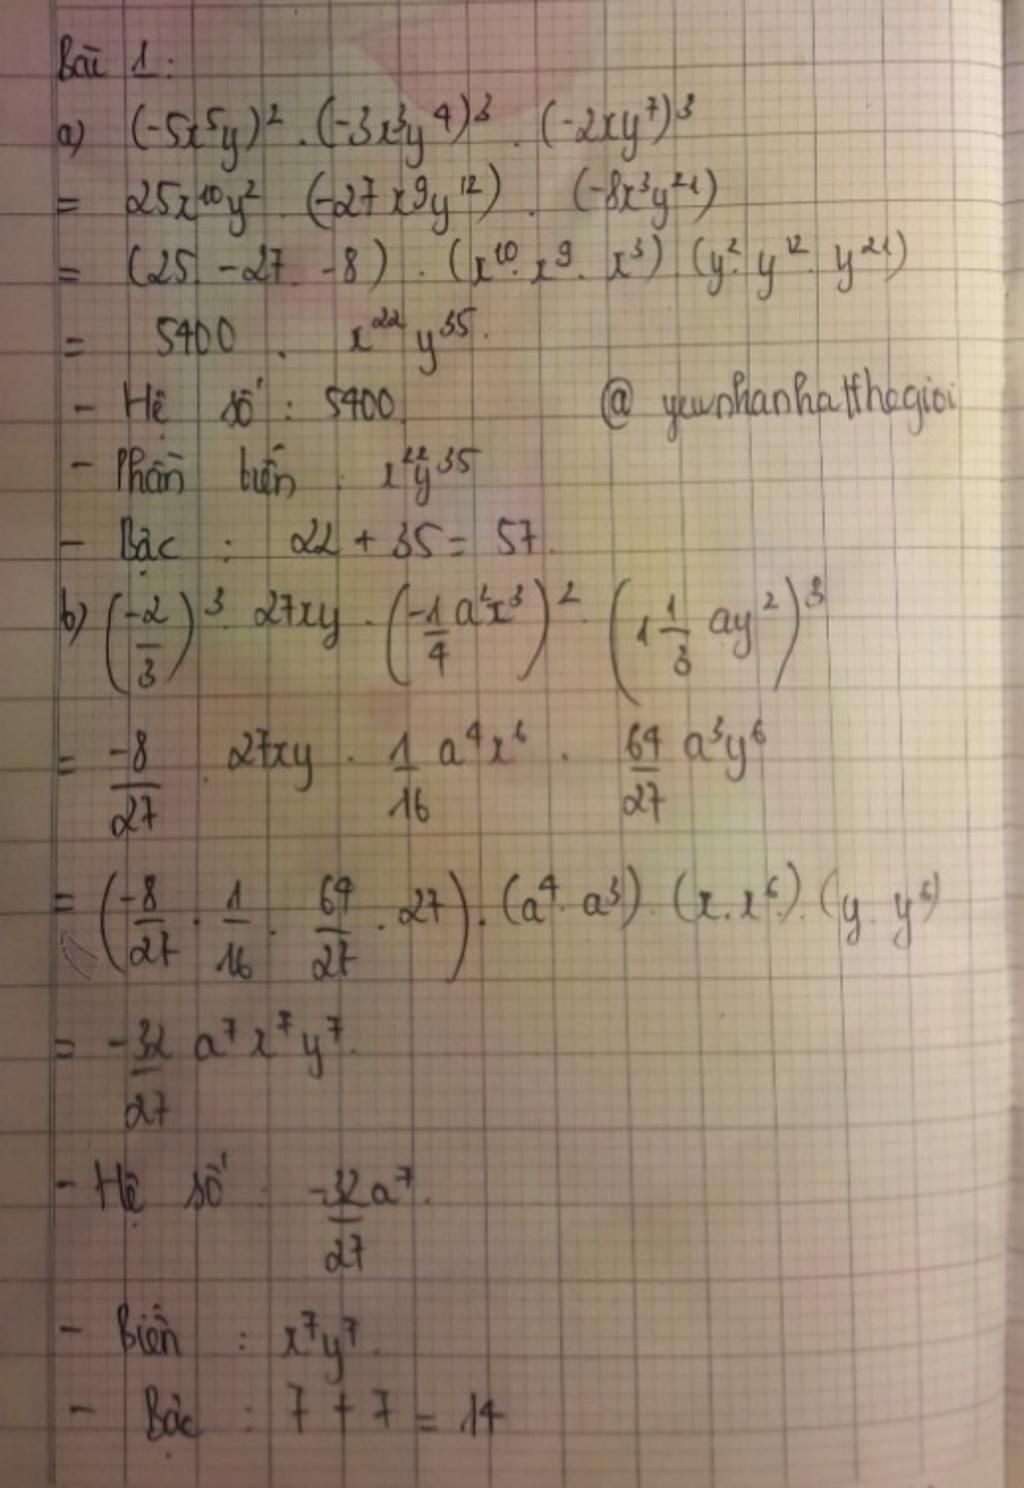 Bài 1:
a) (-5x⁵y)² . (-3x³y⁴)³ . (-2xy⁷)³
= 25x¹⁰y² . (-27x⁹y¹²) . (-8x³y²¹)
= (25 . -27 . -8) . (x¹⁰ . x⁹ . x³) (y² . y¹² . y²¹)
= 5400 . x²²y³⁵.
- Hệ số : 5400. @ yewnhanhatthegioi
- Phần biến : x²²y³⁵
- Bậc : 22 + 35 = 57.
b) (-2/3)³ . 27xy . (-1/4 a²x³)² . (1 1/3 ay²)³
= -8/27 . 27xy . 1/16 a⁴x⁶ . 64/27 a³y⁶
= (-8/27 . 1/16 . 64/27 . 27) . (a⁴ . a³) . (x . x⁶) . (y . y⁶)
= -32/27 a⁷x⁷y⁷.
- Hệ số : -32/27 a⁷.
- Biến : x⁷y⁷.
- Bậc : 7 + 7 = 14